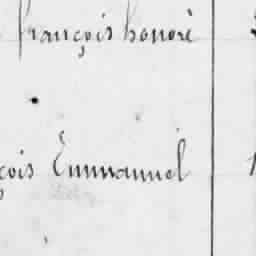 françois honoré
çois Emmanuel